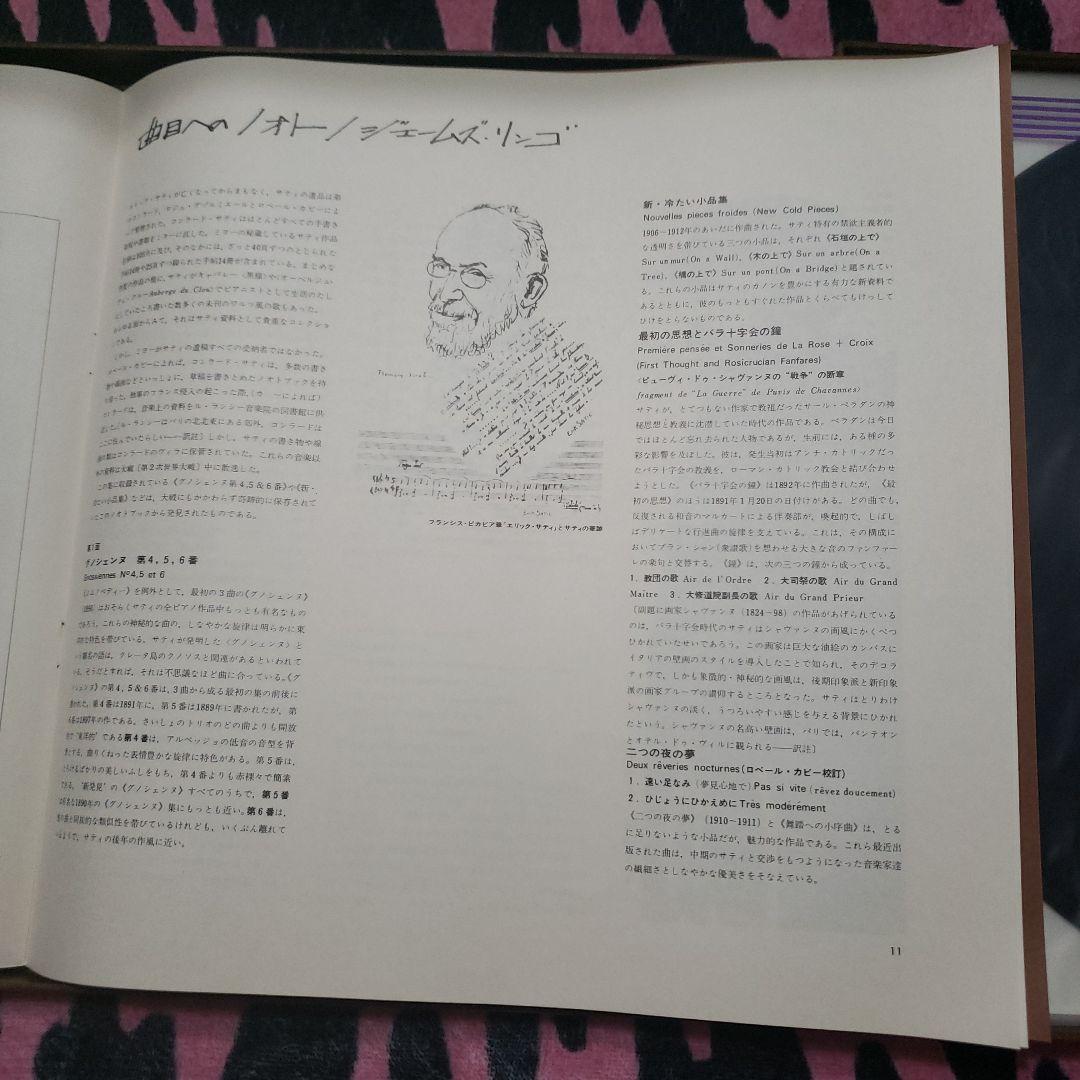 曲目へのノオト／ジェームズ・リンゴ
サティが亡くなってからまもなく，サティの遺品は
ロジェ・デゾルミエールとロベール・カビーによ
コンラード・サティはほとんどすべての手書き
ミヨーの秘蔵しているサティ作品
そのなかには，ざっと40頁ずつのとじられた
手帖14冊が含まれている。まとめな
サティがキャバレー《黒猫》や《オーベルジュ・
Auberge du Clou》でピアニストとして生活のたし
にしていたころ書いた数多くの未刊のワルツ風の歌もあった。
それはサティ資料として貴重なコレクショ
である。
しかし，ミヨーがサティの遺稿すべての受納者ではなかった。
カビーによれば，コンラード・サティは，多数の書き
草稿を書きとめたノオトブックを持
独軍のフランス侵入の起こった際，（カビーによれば）
音楽上の資料をル・ランシー音楽院の図書館に供
（ル・ランシーはパリの北北東にある郊外。コンラードは
ここに住んでいたらしい——訳註）しかし，サティの書き物や線
コンラードのヴィラに保管されていた。これらの音楽以
大戦〔第2次世界大戦〕中に散逸した。
この集に収録されている《グノシェンヌ第4,5&6番》や《新・
冷たい小品集》などは，大戦にもかかわらず奇跡的に保存されて
いたこのノオトブックから発見されたものである。
第1面
グノシェンヌ　第4，5，6番
Gnossiennes Nº4,5 et 6
《ジムノペディー》を例外として，最初の3曲の《グノシェンヌ》
はおそらくサティの全ピアノ作品中もっとも有名なもの
であろう。これらの神秘的な曲の，しなやかな旋律は明らかに東
洋的な特色を帯びている。サティが発明した〈グノシェンヌ〉と
いう題名の語は，クレータ島のクノソスと関連があるといわれて
いる。そうだとすれば，それは不思議なほど曲に合っている。《グ
ノシェンヌ》の第4, 5&6番は，3曲から成る最初の集の前後に
書かれた。第4番は1891年に，第5番は1889年に書かれたが，第
6番は1897年の作である。さいしょのトリオのどの曲よりも開放
的で“東洋的”である第4番は，アルペッジョの低音の音型を背
景とする，曲りくねった表情豊かな旋律に特色がある。第5番は，
とろけるばかりの美しいふしをもち，第4番よりも赤裸々で簡素
である。‘新発見’の《グノシェンヌ》すべてのうちで，第5番
は有名な1890年の《グノシェンヌ》集にもっとも近い。第6番は，
同族的な類似性を帯びているけれども，いくぶん離れて
いるようで，サティの後年の作風に近い。
フランシス・ピカビア筆「エリック・サティ」とサティの筆跡
新・冷たい小品集
Nouvelles pieces froides (New Cold Pieces)
1906－1912年のあいだに作曲された。サティ特有の禁欲主義者的
な透明さを帯びている三つの小品は，それぞれ〈石垣の上で〉
Sur un mur(On a Wall)，〈木の上で〉Sur un arbre(On a
Tree)，〈橋の上で〉Sur un pont(On a Bridge)と題されてい
る。これらの小品はサティのカノンを豊かにする有力な新資料で
あるとともに，彼のもっともすぐれた作品とくらべてもけっして
ひけをとらないものである。
最初の思想とバラ十字会の鐘
Première pensée et Sonneries de La Rose + Croix
(First Thought and Rosicrucian Fanfares)
〈ピューヴィ・ドゥ・シャヴァンヌの“戦争”の断章
fragment de "La Guerre" de Puvis de Chavannes〉
サティが，とてつもない作家で教祖だったサール・ペラダンの神
秘思想と教義に沈潜していた時代の作品である。ペラダンは今日
ではほとんど忘れ去られた人物であるが，生前には，ある種の多
彩な影響を及ぼした。彼は，発生当初はアンチ・カトリックだっ
たバラ十字会の教義を，ローマン・カトリック教会と結び合わせ
ようとした。《バラ十字会の鐘》は1892年に作曲されたが，《最
初の思想》のほうは1891年1月20日の日付けがある。どの曲でも，
反復される和音のマルカートによる伴奏部が，喚起的で，しばし
ばデリケートな行進曲の旋律を支えている。これは，その構成に
おいてプラン・シャン(衆讃歌)を思わせる大きな音のファンファー
レの楽句と交替する。《鐘》は，次の三つの鐘から成っている。
1．教団の歌 Air de l'Ordre　2．大司祭の歌 Air du Grand
Maître　3．大修道院副長の歌 Air du Grand Prieur
〔副題に画家シャヴァンヌ（1824－98）の作品があげられている
のは，バラ十字会時代のサティはシャヴァンヌの画風にかくべつ
ひかれていたせいであろう。この画家は巨大な油絵のカンバスに
イタリアの壁画のスタイルを導入したことで知られ，そのデコラ
ティヴで，しかも象徴的・神秘的な画風は，後期印象派と新印象
派の画家グループの讃仰するところとなった。サティはとりわけ
シャヴァンヌの淡く，うつろいやすい感じを与える背景にひかれ
たという。シャヴァンヌの名高い壁画は，パリでは，パンテオン
とオテル・ドゥ・ヴィルに観られる——訳註〕
二つの夜の夢
Deux rêveries nocturnes(ロベール・カビー校訂)
1．遠い足なみ（夢見心地で）Pas si vite (rêvez doucement)
2．ひじょうにひかえめに Très modérément
《二つの夜の夢》(1910－1911）と《舞踏への小序曲》は，とる
に足りないような小品だが，魅力的な作品である。これら最近出
版された曲は，中期のサティと交渉をもつようになった音楽家達
の繊細さとしなやかな優美さをそなえている。
11